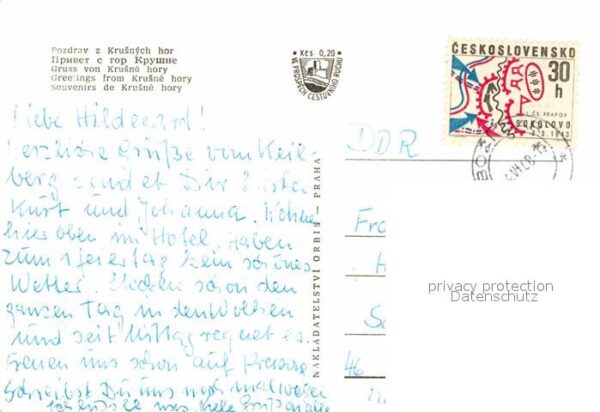 Pozdrav z Krušných hor
Привет с гор Крушне
Gruss von Krušné hory
Greetings from Krušné hory
Souvenirs de Krušné hory
Kčs 0,20
VE PROSPĚCH CESTOVNÍHO RUCHU
ČESKOSLOVENSKO
30 h
SOKOLOVO
8.3.1943
Liebe Hildegard!
Herzliche Grüße vom Keil-
berg sendet Dir
Kurt und Johanna.
hier oben im Hotel. Haben
zum Feiertag kein schönes
Wetter. schon den
ganzen Tag in den Wolken
und seit Mittag regnet es.
Freuen uns schon auf
Schreibst Du uns noch mal
viele Grüße an alle
NAKLADATELSTVÍ ORBIS — PRAHA
DDR
Fr
H
S
46
privacy protection
Datenschutz